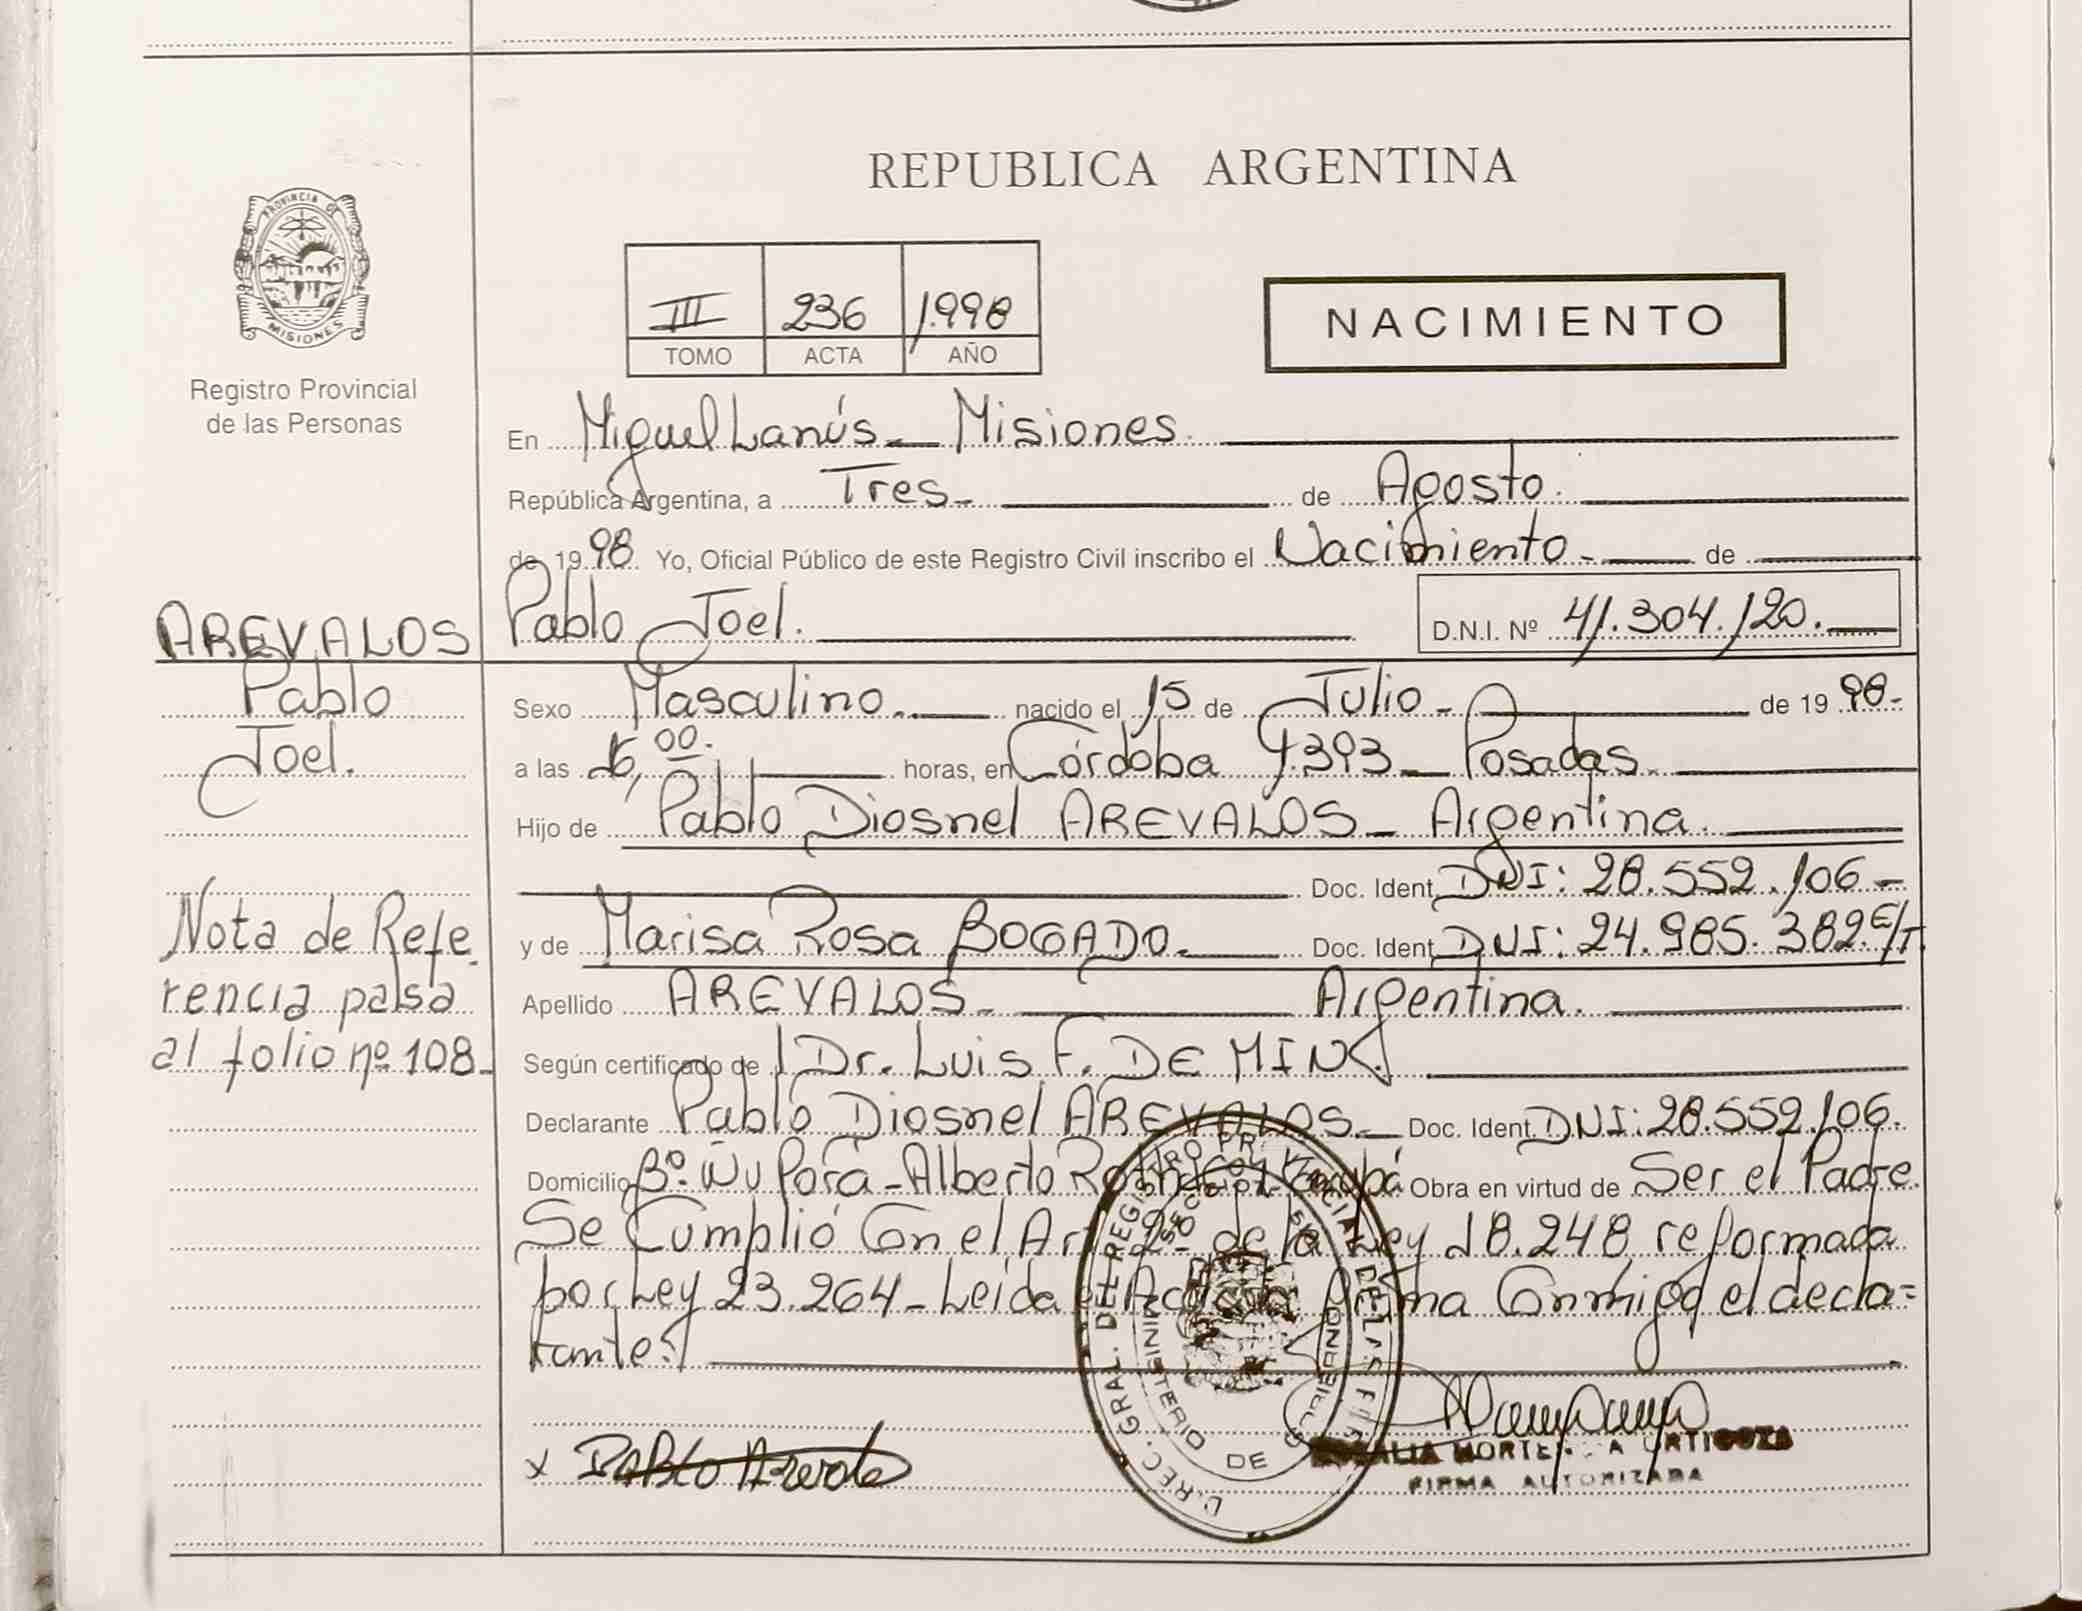 REPUBLICA ARGENTINA
PROVINCIA DE
MISIONES
Registro Provincial
de las Personas
III 236 1.998
TOMO ACTA AÑO
NACIMIENTO
En Miguel Lanús - Misiones.
República Argentina, a Tres - de Agosto.
de 19 98. Yo, Oficial Público de este Registro Civil inscribo el Nacimiento - de
AREVALOS Pablo Joel. D.N.I. Nº 41.304.120.
Pablo
Joel.
Sexo Masculino. nacido el 15 de Julio - de 19 98.
a las 00. horas, en Córdoba 1.393 - Posadas.
Hijo de Pablo Diosnel AREVALOS - Argentina.
Doc. Ident. DNI: 28.552.106 -
y de Marisa Rosa BOGADO. Doc. Ident. DNI: 24.985.382
Apellido AREVALOS - Argentina.
Según certificado de Dr. Luis F. DE MIN
Declarante Pablo Diosnel AREVALOS. Doc. Ident. DNI: 28.552.106.
Domicilio Bº. Ñu Porá - Alberto Obra en virtud de Ser el Padre.
Se Cumplió Con el Art. 2º de la Ley 18.248 reformada
por Ley 23.264 - Leída el Acta la firma Conmigo el decla=
rante:
Nota de Refe
rencia pasa
al folio nº 108.
x Pablo Arevalo
HORTENCIA URTIGOZA
FIRMA AUTORIZADA
DEL REGISTRO PROVINCIAL DE LAS
MINISTERIO DE GOBIERNO